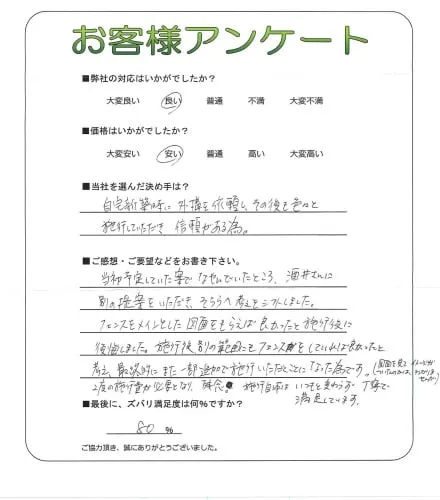 お客様アンケート
■弊社の対応はいかがでしたか?
大変良い 良い 普通 不満 大変不満
■価格はいかがでしたか?
大変安い 安い 普通 高い 大変高い
■当社を選んだ決め手は?
自宅新築時に外構を依頼し、その後も色々と
施行していただき 信頼がある為。
■ご感想・ご要望などをお書き下さい。
当初予定していた案でなやんでいたところ、酒井さんに
別の提案をいただき、そちらへ考えをシフトしました。
フェンスをメインとした図面をもらえば良かったと施行後に
後悔しました。施行後、別の範囲にもフェンスをしていれば良かったと
考え、最終的にまた一部追加で施行いただくことになった為です。
(図面を見てイメージが
2度の施行費が必要となり、残念。施行自体はいつもと変わらず丁寧で
満足しています。
■最後に、ズバリ満足度は何%ですか?
80 %
ご協力頂き、誠にありがとうございました。